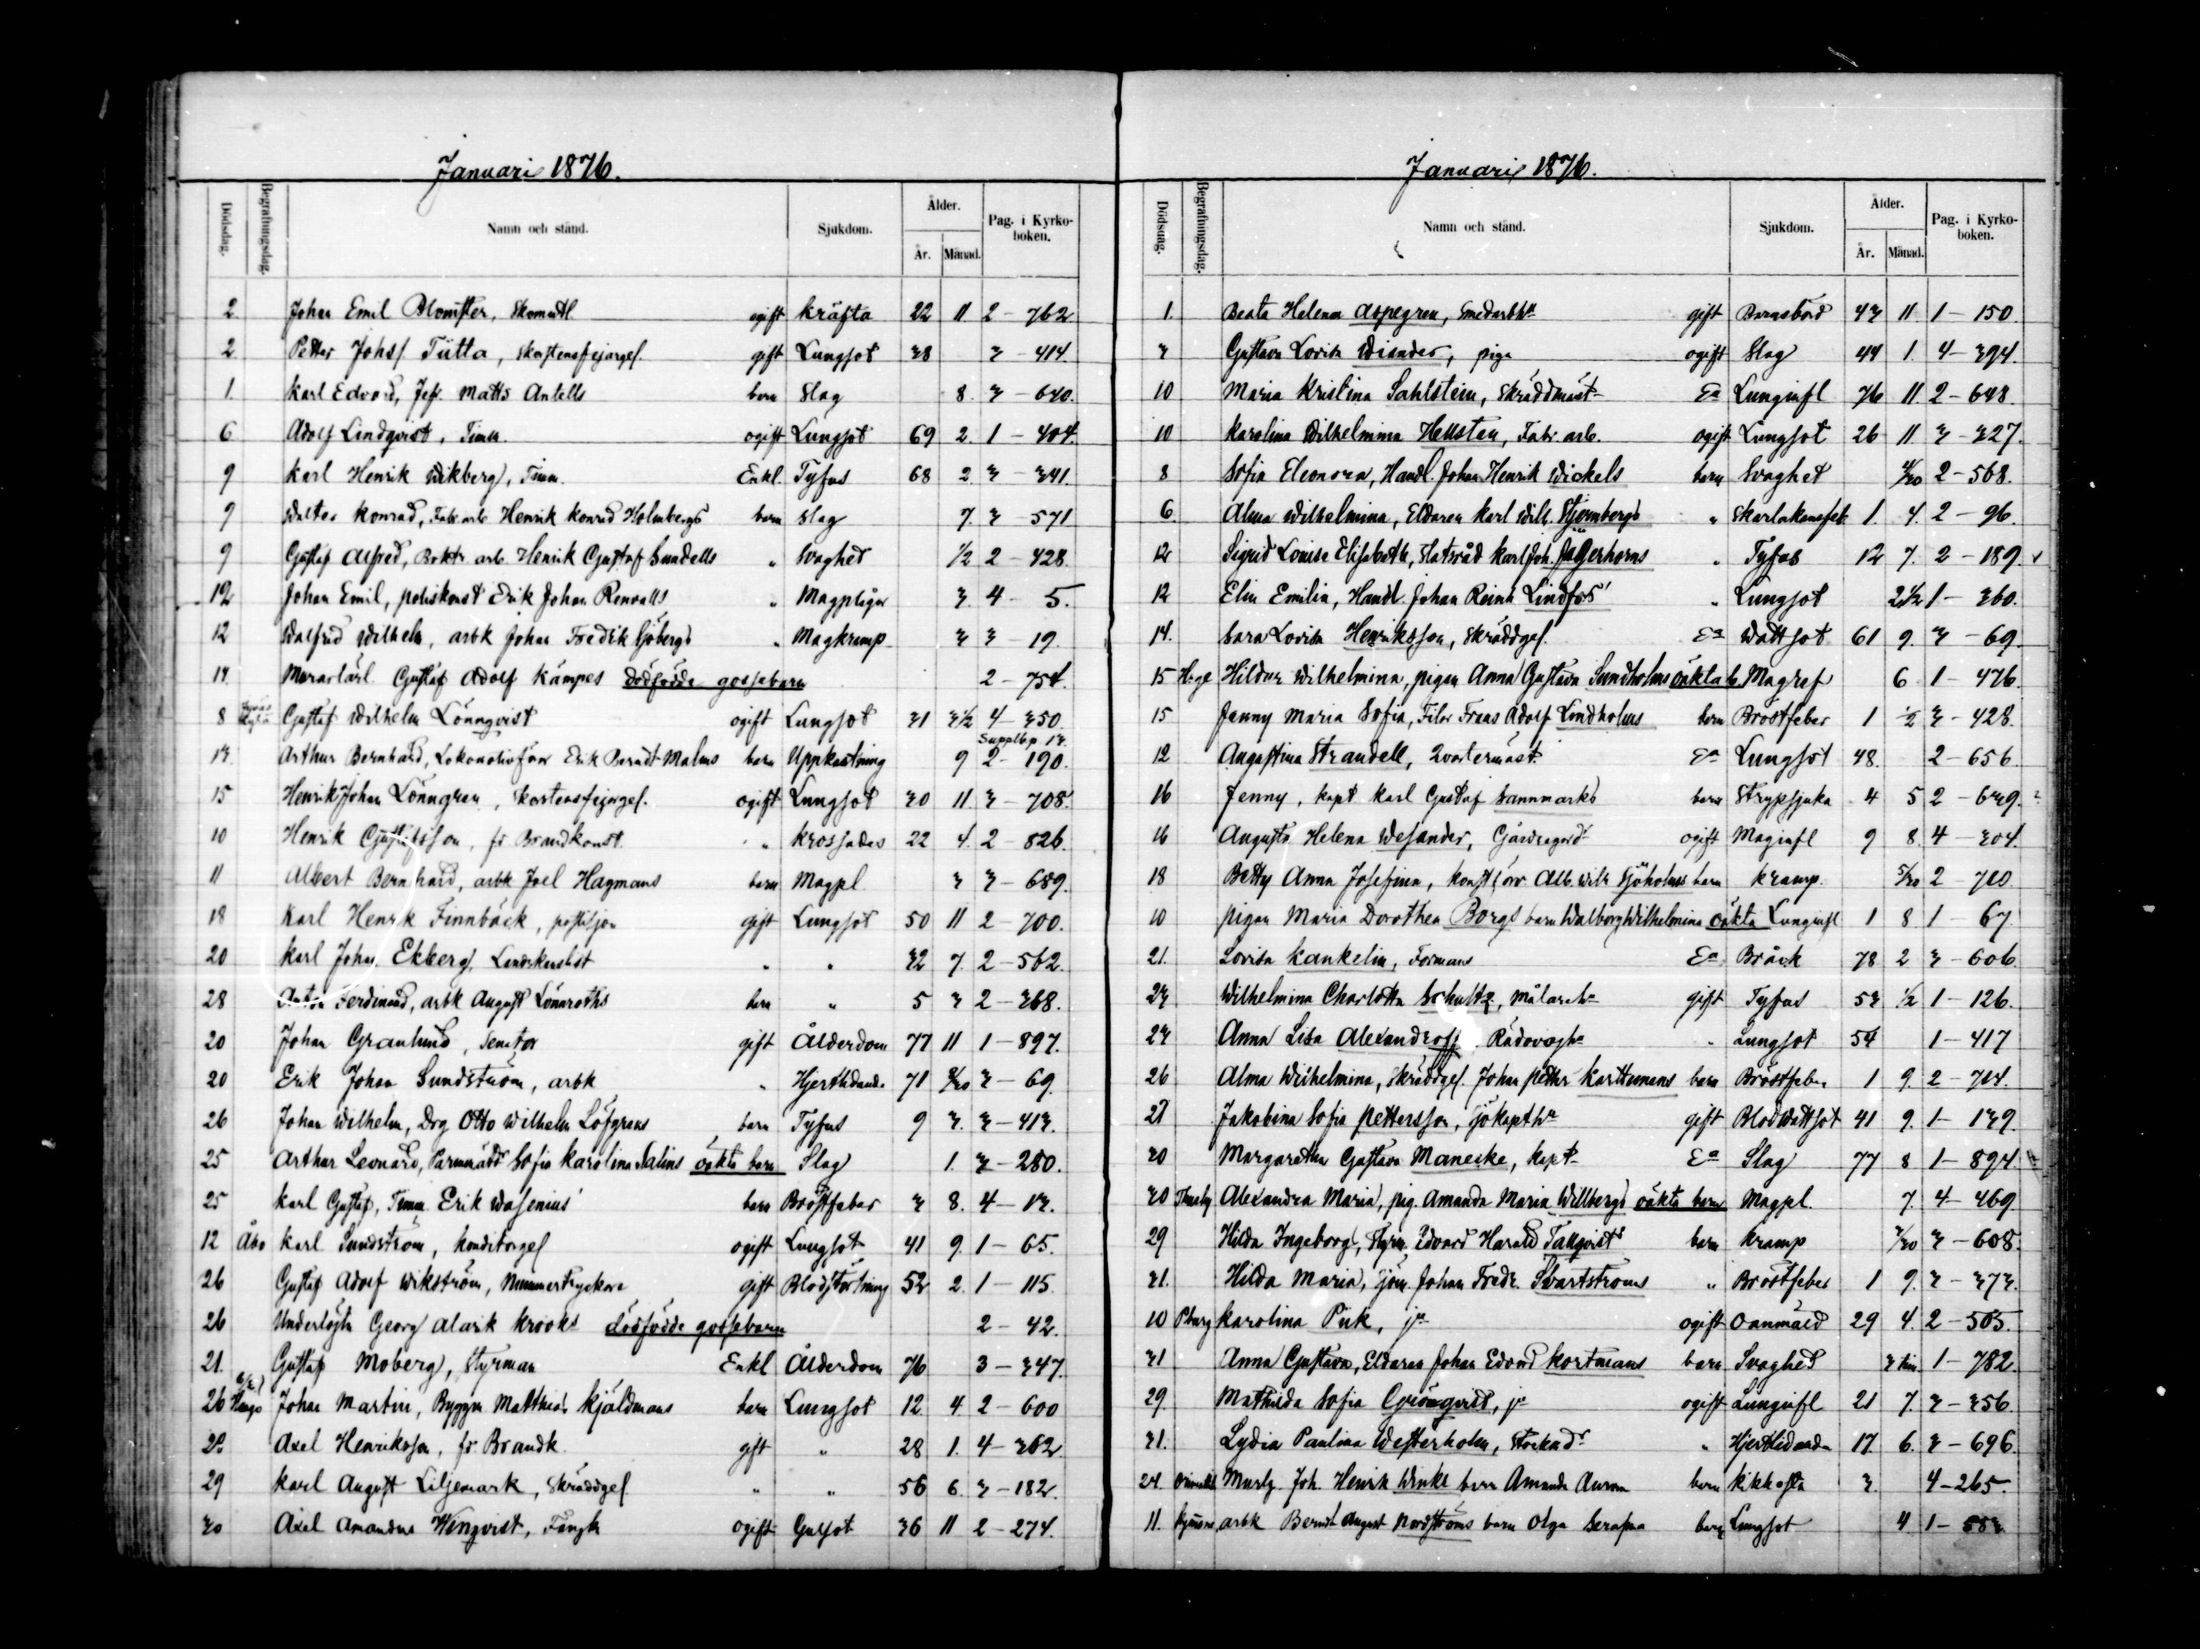 Januari 1876.
Dödsdag. Begrafningsdag. Namn och stånd. Sjukdom. Ålder. År. Månad. Pag. i Kyrko-boken.
2 Johan Emil Blomster, Skomdl ogift kräfta 22 11 2 - 762
2 Petter Johs Tütta, Skorstensfejargel. gift Lungsot 38 3 - 414.
1. Karl Edvard, Matts Antells barn Slag 8. 3 - 640.
6 Adolf Lindqvist, Timm. ogift Lungsot 69 2. 1 - 404.
9 Karl Henrik Wikberg, Timm. Enkl. Tyfus 68 2. 3 - 341.
9 Walter Konrad, Fabr. arb. Henrik Konrad Holmbergs barn Slag 7. 3 - 571
9 Gustaf Alfred, arb. Henrik Gustaf Sundells " Svaghet 1/2 2 - 428.
12 Johan Emil, poliskonst Erik Johan Renvalls " Magplågor 3. 4 - 5.
12 Walfrid Wilhelm, arbk Johan Fredrik Sjöbergs " Magkramp 3 3 - 19.
14 Murarlärl Gustaf Adolf Kämpes dödfödde gossebarn 2 - 754.
8 Gustaf Wilhelm Lönnqvist ogift Lungsot 31 3 1/2 4 - 350.
Supplbp 13.
13. Arthur Bernhard, Lokomotivför Erik Berndt Malms barn Uppkastning 9 2 - 190.
15 Henrik Johan Lönngren, Skorstensfejargel. ogift Lungsot 30 11 3 - 708.
10 Henrik Gustafsson, fr Brandkonst " Krossades 22 4. 2 - 826.
11 Albert Bernhard, arbk Joel Hagmans barn Magpl 3 3 - 689.
18 Karl Henrik Finnbäck, postiljon gift Lungsot 50 11 2 - 700.
20 Karl Johan Ekberg, Landskanslist " " 32 7. 2 - 562.
28 Anton Ferdinand, arbk August Lönnroths barn " 5 3 2 - 368.
20 Johan Granlund, Senator gift Ålderdom 77 11 1 - 897.
20 Erik Johan Sundström, arbk " Hjertlidande 71 8/30 3 - 69.
26 Johan Wilhelm, Drg Otto Wilhelm Löfgrens barn Tyfus 9 3. 3 - 413.
25 Arthur Leonard, Sofia Karolina Salins oäkta barn Slag 1. 3 - 280.
25 Karl Gustaf, Timm. Erik Wasenius' barn Bröstfeber 3 8. 4 - 13.
12 Åbo Karl Sundström, Konditorgel ogift Lungsot 41 9. 1 - 65.
26 Gustaf Adolf Wikström, Nummertryckare gift Blodstörtning 52 2. 1 - 115.
26 Underlöjtn Georg Alarik Krooks dödfödde gossebarn 2 - 42.
21. Gustaf Moberg, Styrman Enkl Ålderdom 76 3 - 347.
26 Johan Martin, Byggm Matthias Kjäldmans barn Lungsot 12 4. 2 - 600
28 Axel Henriksson, fr Brandk. gift " 28 1. 4 - 362.
29 Karl August Liljemark, Skräddgel " " 56 6. 3 - 182.
30 Axel Amandus Winqvist, Fångk ogift Gulsot 36 11 2 - 274.
Januari 1876.
Dödsdag. Begrafningsdag. Namn och stånd. Sjukdom. Ålder. År. Månad. Pag. i Kyrko-boken.
1. Beata Helena Aspegren, Smedarbh gift Barnsbörd 43 11. 1 - 150.
3 Gustava Lovisa Wiander, piga ogift Slag 44 1. 4 - 394.
10 Maria Kristina Sahlstein, Skräddmäst Ea Lunginfl 76 11. 2 - 648.
10 Karolina Wilhelmina Hellsten, Fabr. arb. ogift Lungsot 26 11 3 - 327.
8 Sofia Eleonora, Handl. Johan Henrik Wickels barn Svaghet 4/30 2 - 568.
6. Alma Wilhelmina, Eldaren Karl Wilh. Stjernbergs " Skarlakansfeb 1. 4. 2 - 96.
12 Sigrid Louise Elisabeth, Statsråd Karl Joh. Jägerhorns " Tyfus 12 7. 2 - 189.
12 Elin Emilia, Handl. Johan Reinh Lindfors' " Lungsot 2 1/2 1 - 360.
14. Sara Lovisa Henriksson, Skräddgel. Ea Wattsot 61 9. 3 - 69.
15 Hildur Wilhelmina, pigan Anna Gustava Sundholms oäkta b. Magref 6 1 - 476.
15 Jenny Maria Sofia, Filer Frans Adolf Lindholms barn Bröstfeber 1 1/2 3 - 428.
12 Augustina Strandell, Qvartermäst. Ea Lungsot 48. 2 - 656.
16 Jenny, kapt Karl Gustaf Sannmarks barn Strypsjuka 4 5 2 - 639.
16 Augusta Helena Wesander, Gårdsegard ogift Maginfl 9 8. 4 - 304.
18 Betty Anna Josefina, Konstförv. Alb. Wilh Sjöholms barn Kramp. 5/30 2 - 710
10 pigan Maria Dorothea Borgs barn Walborg Wilhelmina oäkta Lunginfl 1 8 1 - 67.
21. Lovisa Kankelin, Formans Ea Bråck 78 2 3 - 606.
23 Wilhelmina Charlotta Schultz, Målareh gift Tyfus 53 1/2 1 - 126.
23 Anna Lisa Alexandroff, Rådovagh " Lungsot 54 1 - 417
26 Alma Wilhelmina, Skräddgel. Johan Petter Karttunens barn Bröstfeber 1 9. 2 - 714.
27 Jakobina Sofia Pettersson, Sjökapth gift Blodwattsot 41 9. 1 - 139.
30 Margaretha Gustava Manecke, kapt Ea Slag 77 8 1 - 894
30 Alexandra Maria, pig. Amanda Maria Willbergs oäkta barn Magpl. 7. 4 - 469.
29 Hilda Ingeborg, Styrm. Edvard Harald Tallqvists barn Kramp 3/30 3 - 608.
31. Hilda Maria, Sjöm. Johan Fredr. Svartströms " Bröstfeber 1 9. 3 - 373.
10 Pburg Karolina Puk, ja ogift Oanmäld 29 4. 2 - 505.
31 Anna Gustava, Eldaren Johan Edvard Kortmans barn Svaghet 3 tim. 1 - 782.
29. Mathilda Sofia Grönqvist, ja ogift Lunginfl 21 7. 3 - 356.
31. Lydia Paulina Westerholm, " Hjertlidande 17 6. 3 - 696.
24. Joh. Henrik Winks barn Amanda Aurora barn Kikhosta 3. 4 - 265
11. arbk Berndt August Nordströms barn Olga Serafina barn Lungsot 4 1 - 583